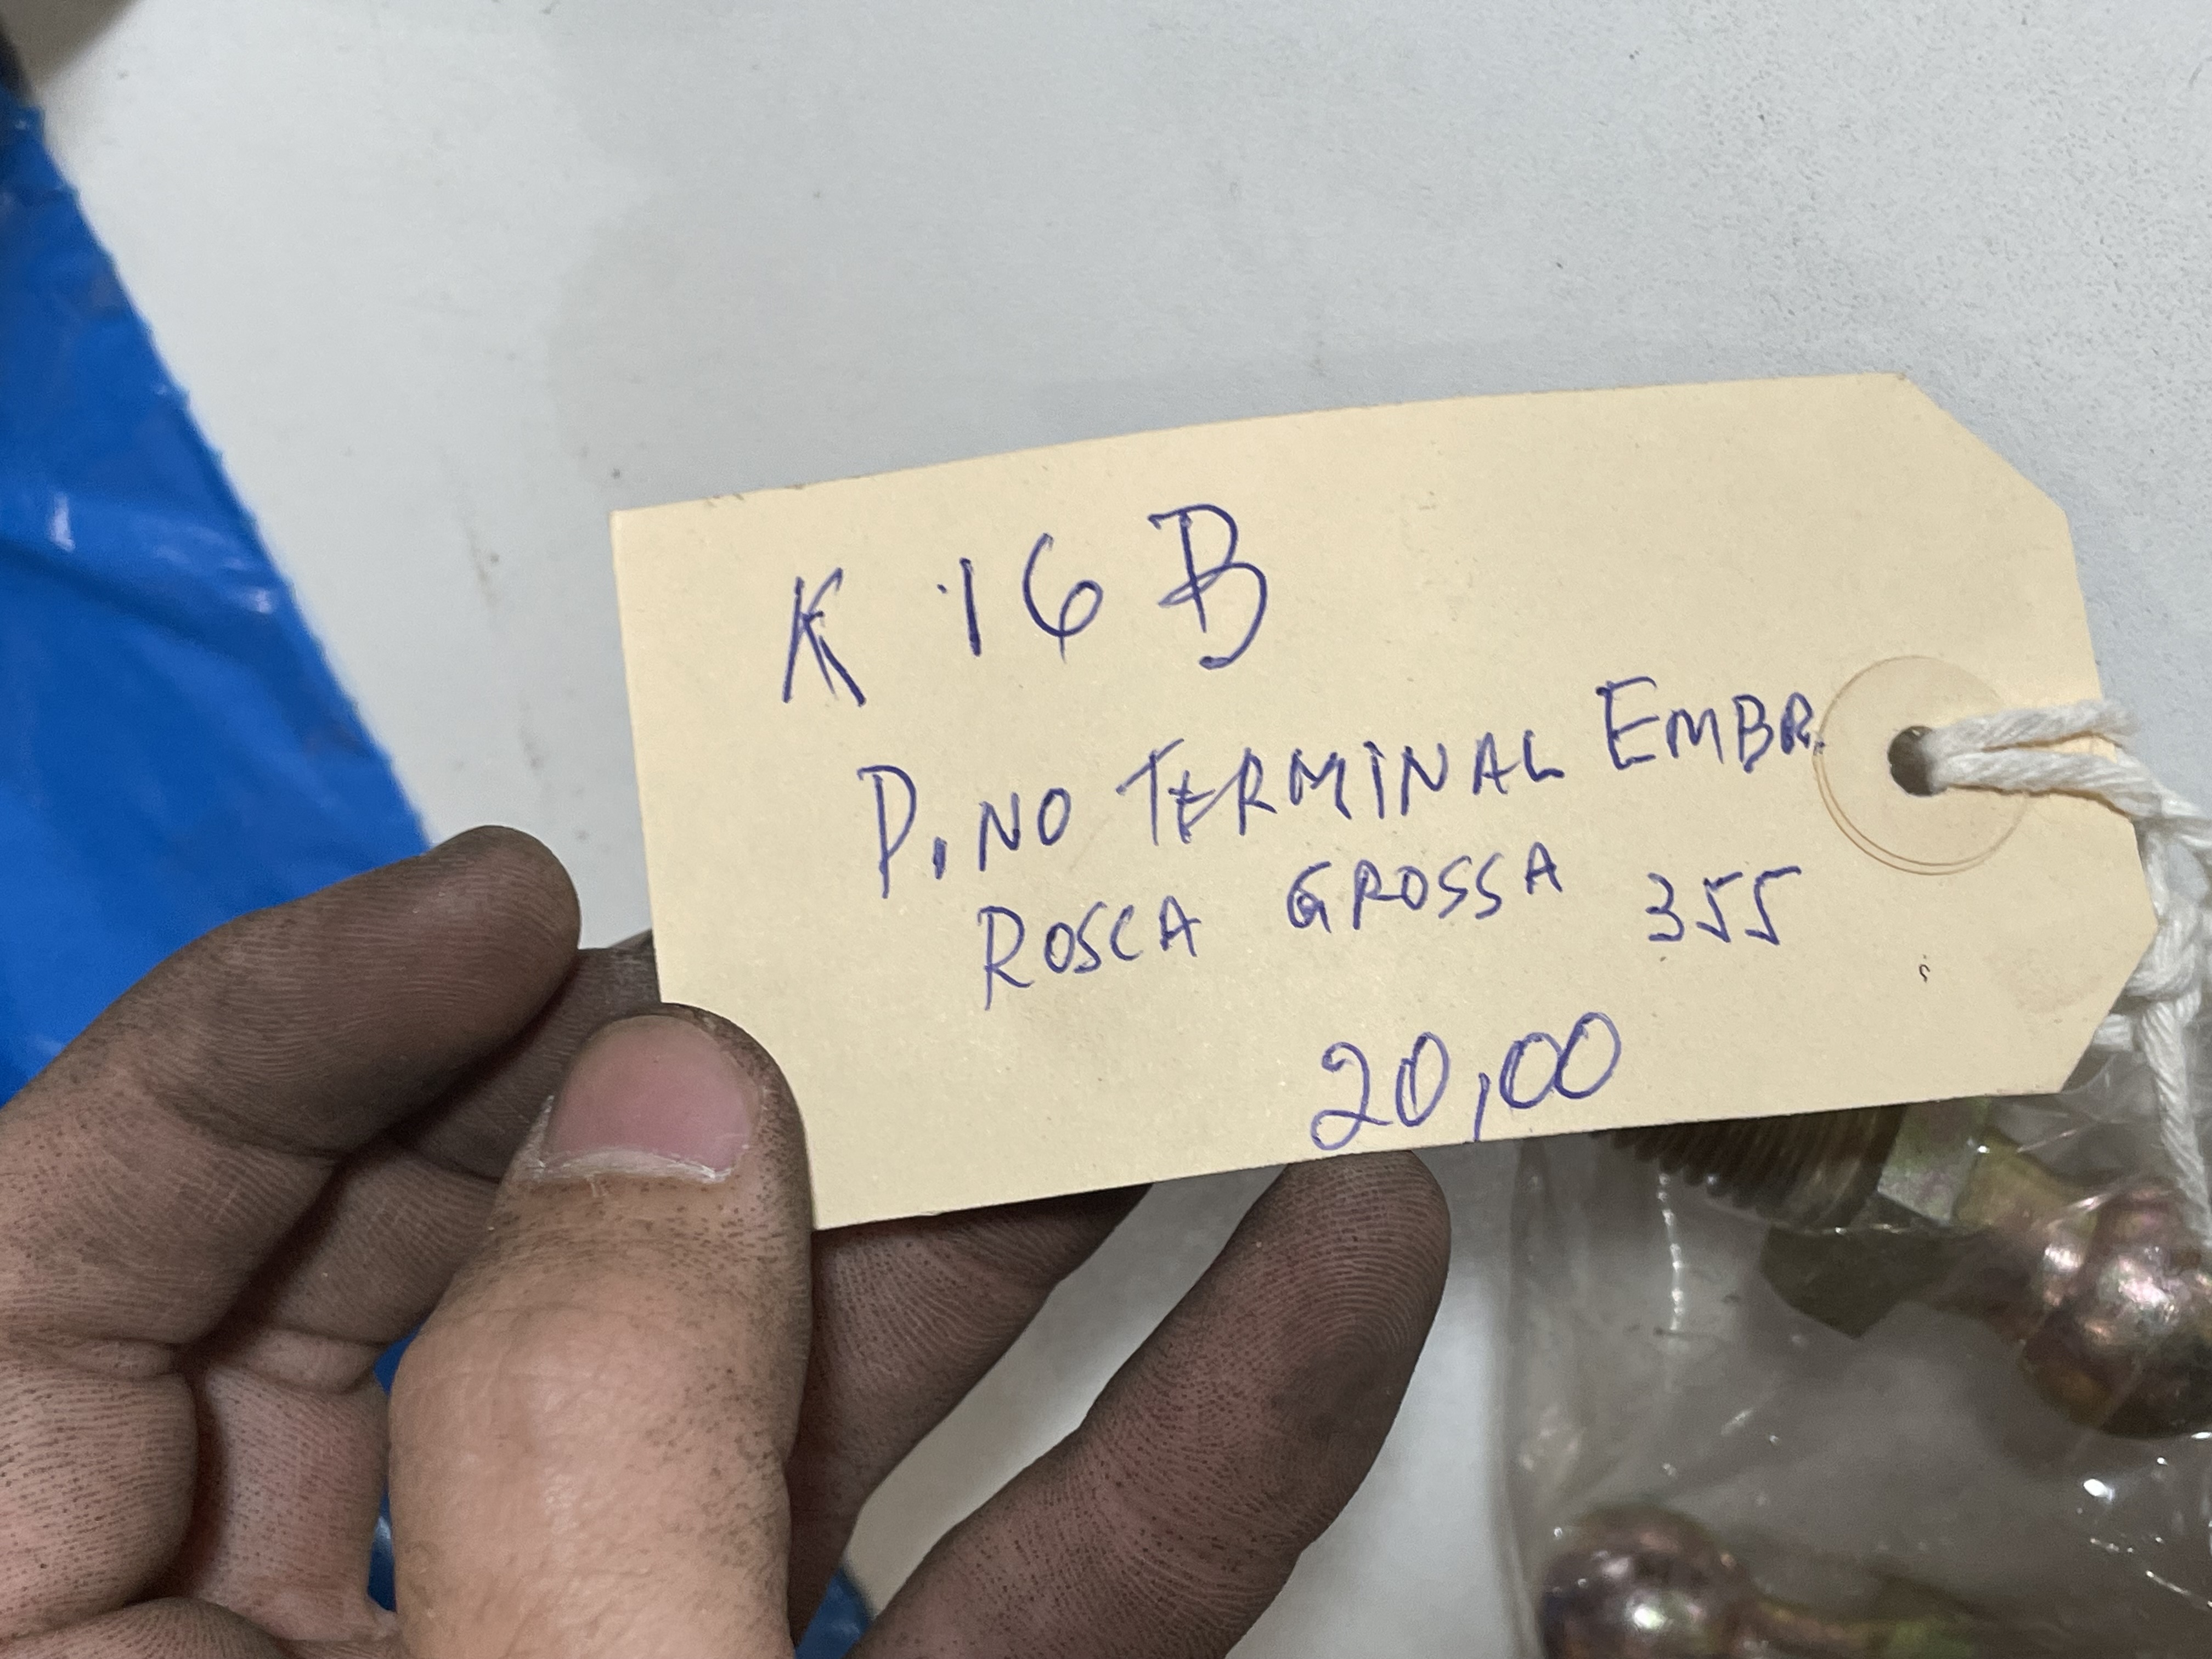 K 16 B
PINO TERMINAL EMBR
ROSCA GROSSA 355
20,00